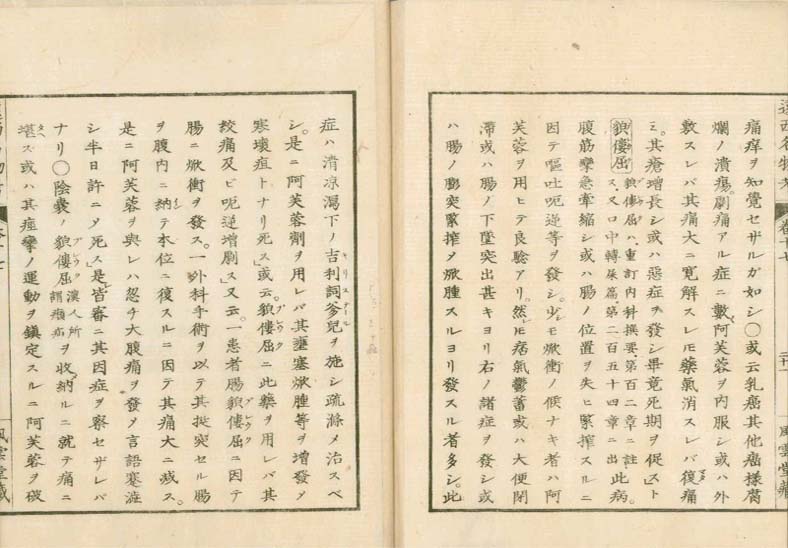 痛痒ヲ知覺セザルガ如シ〇或云乳癌其他癌樣腐
爛ノ潰瘍。劇痛アル症ニ數阿芙蓉ヲ內服シ或ハ外
敷スレバ其痛大ニ寛解スレ𪜈藥氣消スレバ復痛
ミ。其瘡增長シ或ハ惡症ヲ發シ畢竟死期ヲ促ト
貌僂屈 貌僂屈ハ、重訂內科撰要、第百二章ニ註
ス、又口中轉屎篇、第二百五十四章ニ出 此病。
腹筋攣急牽縮シ或ハ腸ノ位置ヲ失ヒ緊搾スルニ
因テ嘔吐呃逆等ヲ發シ。少シモ焮衝ノ候ナキ者ハ阿
芙蓉ヲ用ヒテ良驗アリ。然𪜈痞氣鬱蓄或ハ大便閉
滯或ハ腸ノ下墜突出甚キヨリ右ノ諸症ヲ發シ或
ハ腸ノ膨突緊搾ヲ焮腫スルヨリ發スル者多シ。此
遠西名物考 卷十七
風雲堂藏
症ハ清凉瀉下ノ吉利詞爹兒ヲ施シ疏滌メ治スベ
シ。是ニ阿芙蓉劑ヲ用レバ其壅塞焮腫等ヲ增發メ
寒壞疽トナリ死ス或云。貌僂屈ニ此藥ヲ用レバ其
絞痛及ビ呃逆增劇ス又云。一患者腸貌僂屈ニ因テ
腸ニ焮衝ヲ發ス。一外科手術ヲ以テ其挺突セル腸
ヲ腹內ニ納テ本位ニ復スルニ因テ其痛大ニ减ス。
是ニ阿芙蓉ヲ與レハ忽チ大腹痛ヲ發メ言語蹇澁
シ半日許ニメ死ス是皆審ニ其因症ヲ察セザレバ
ナリ〇陰囊ノ貌僂屈 漢人所
謂㿗疝 ヲ收納ルニ就テ痛ニ
堪ズ或ハ其痙攣ノ運動ヲ鎮定スルニ阿芙蓉ヲ破
風雲堂藏